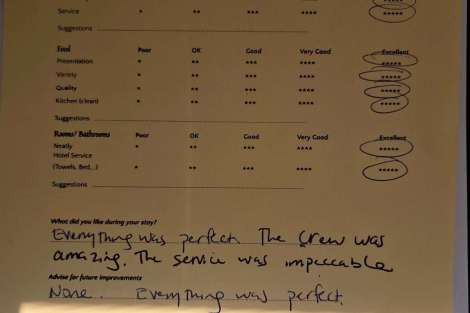 Service * ** *** **** *****
Suggestions
Food Poor OK Good Very Good Excellent
Presentation * ** *** **** *****
Variety * ** *** **** *****
Quality * ** *** **** *****
* ** *** **** *****
Suggestions
Rooms/ Bathrooms Poor OK Good Very Good Excellent
Neatly * ** *** **** *****
Hotel Service
(Towels, Bed,..) * ** *** **** *****
Suggestions
What did you like during your stay?
Everything was perfect. The crew was
amazing. The service was impeccable
Advise for future improvements
None. Everything was perfect.